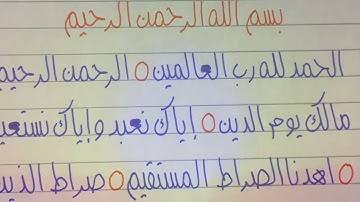 بسم الله الرحمن الرحيم
الحمد لله رب العالمين ○ الرحمن الرحيم
مالك يوم الدين ○ إياك نعبد وإياك نستعين
○ اهدنا الصراط المستقيم ○ صراط الذين